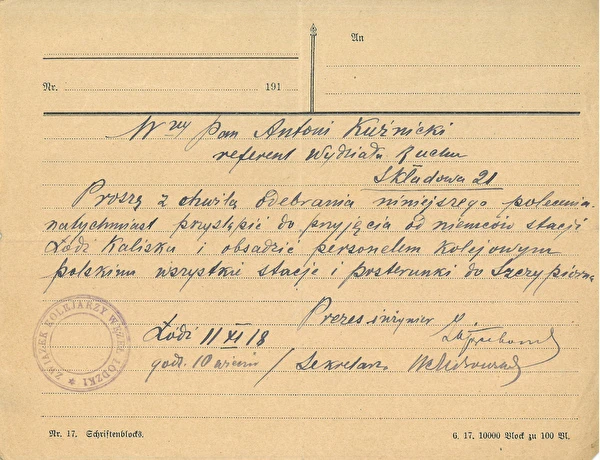 An
Nr. 191
Wny Pan Antoni Kuźnicki
referent Wydziału Ruchu
Składowa 21
Proszę z chwilą odebrania niniejszego polecenia
natychmiast przystąpić do przyjęcia od niemców stacji
Łódź Kaliska i obsadzić personelem kolejowym
polskim wszystkie stacje i posterunki do Szczypiorna
Prezes inżynier
Łódź 11 XI 18
godz. 10 wiecz / Sekretarz
ZWIĄZEK KOLEJARZY WĘZEŁ ŁÓDZKI
Nr. 17. Schriftenblocks.
6. 17. 10000 Block zu 100 Bl.